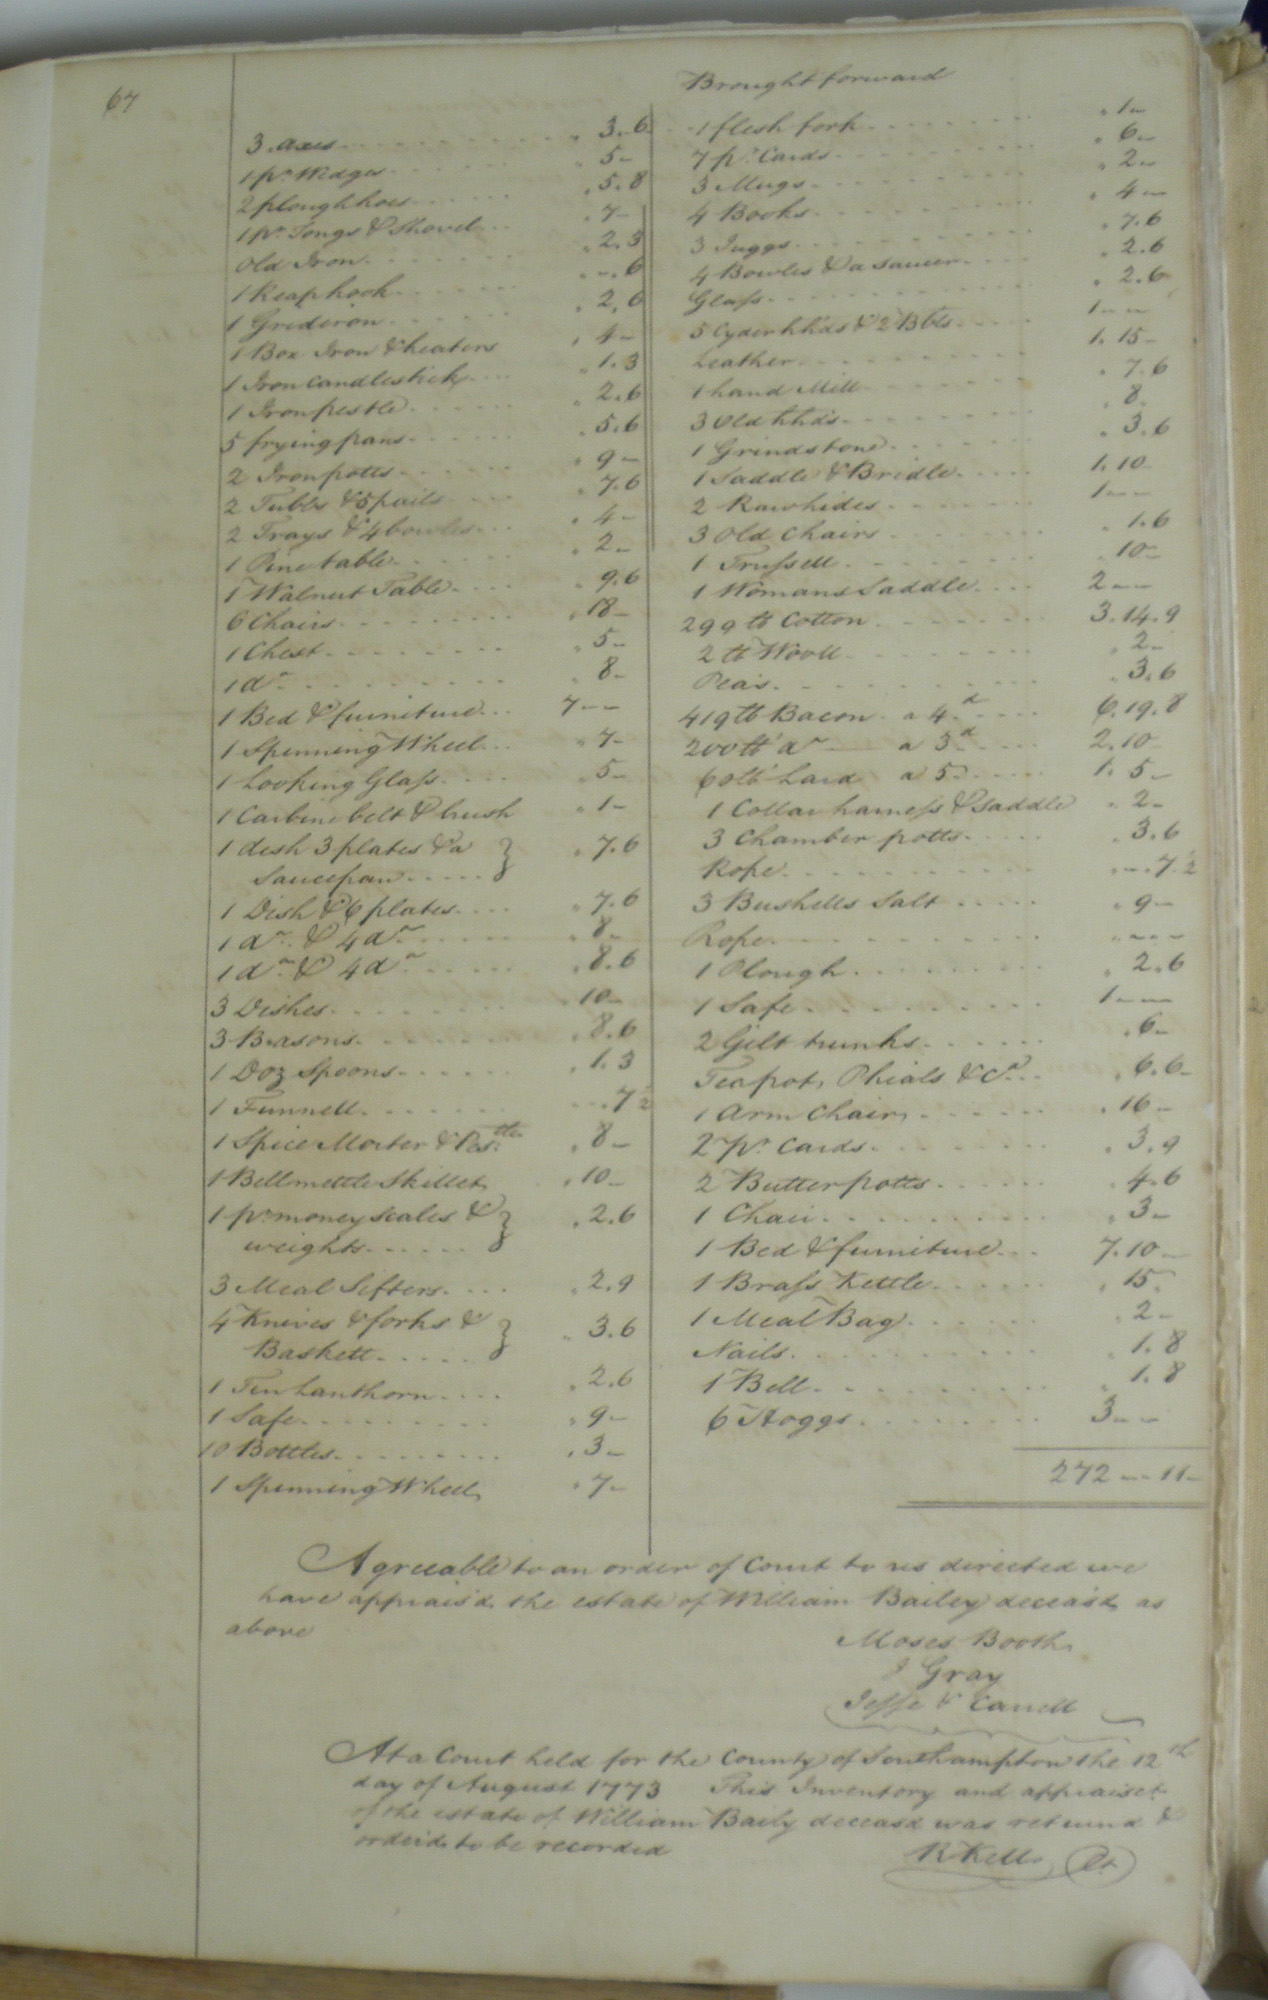 67
3 axes . 3..6
1 pr Wedges . 5–
2 ploughhoes . 5.8
1 pr Tongs & Shovel . 7–
Old Iron . 2.3
1 Reaphook . –.6
1 Gridiron . 2.6
1 Box Iron & heaters . 4–
1 Iron candlestick . 1.3
1 Iron pestle . 2.6
5 frying pans . 5.6
2 Iron potts . 9–
2 Tubbs & 5 pails . 7.6
2 Trays & 4 bowles . 4–
1 Pine table . 2–
1 Walnut Table . 9.6
6 Chairs . 18–
1 Chest . 5–
1 do . 8–
1 Bed & furniture 7––
1 Spinning Wheel . 7–
1 Looking Glass . 5–
1 Carbine belt & brush . 1–
1 dish 3 plates & a
Saucepan . 7.6
1 Dish & 6 plates . 7.6
1 do & 4 do . 8–
1 do & 4 do . 8.6
3 Dishes . 10–
3 Beasons . 8.6
1 Doz Spoons . 1.3
1 Funnell . –.7½
1 Spice Morter & Pestle . 8–
1 Bellmettle Skillet . 10–
1 pr money scales &
weights . 2.6
3 Meal Sifters . 2.9
4 Knives & forks &
Baskett . 3.6
1 Tin Lanthorn . 2.6
1 Safe . 9–
10 Bottles . 3–
1 Spinning Wheel . 7–
Brought forward
1 flesh fork . 1–
7 pr Cards . 6–
3 Mugs . 2–
4 Books . 4–
3 Juggs . 7.6
4 Bowles & a saucer . 2.6
Glass . 2.6
5 Cyder hhds & 2 Bbls 1––
Leather 1.15–
1 hand Mill . 7.6
3 Old hhds . 8
1 Grindstone . 3.6
1 Saddle & Bridle 1.10
2 Rawhides 1––
3 Old chairs . 1.6
1 Trussell . 10–
1 Womans Saddle 2––
299 lb Cotton 3.14.9
2 lb Wooll . 2–
Peas . 3.6
419 lb Bacon a 4d 6.19.8
200 lb do a 3d 2.10
60 lb Lard a 5d 1.5–
1 Collar harness & Saddle . 2–
3 Chamber potts . 3.6
Rope . –.7½
3 Bushells Salt . 9–
Rope . –––
1 Plough . 2.6
1 Safe 1––
2 Gilt trunks . 6–
Teapot, Phials &Ca . 6.6
1 Arm Chair . 16–
2 pr Cards . 3.9
2 Butter potts . 4.6
1 Chair . 3–
1 Bed & furniture 7.10–
1 Brass Kettle . 15
1 Meal Bag . 2–
Nails . 1.8
1 Bell . 1.8
6 Hoggs 3––
272––11–
Agreeable to an order of Court to us directed we
have apprais'd the estate of William Bailey deceas'd as
above
Moses Booth
J Gray
Jesse
At a Court held for the County of Southampton the 12th
day of August 1773 This Inventory and appraiset
of the estate of William Baily deceasd was returnd &
orderd to be recorded
R Kello Ct